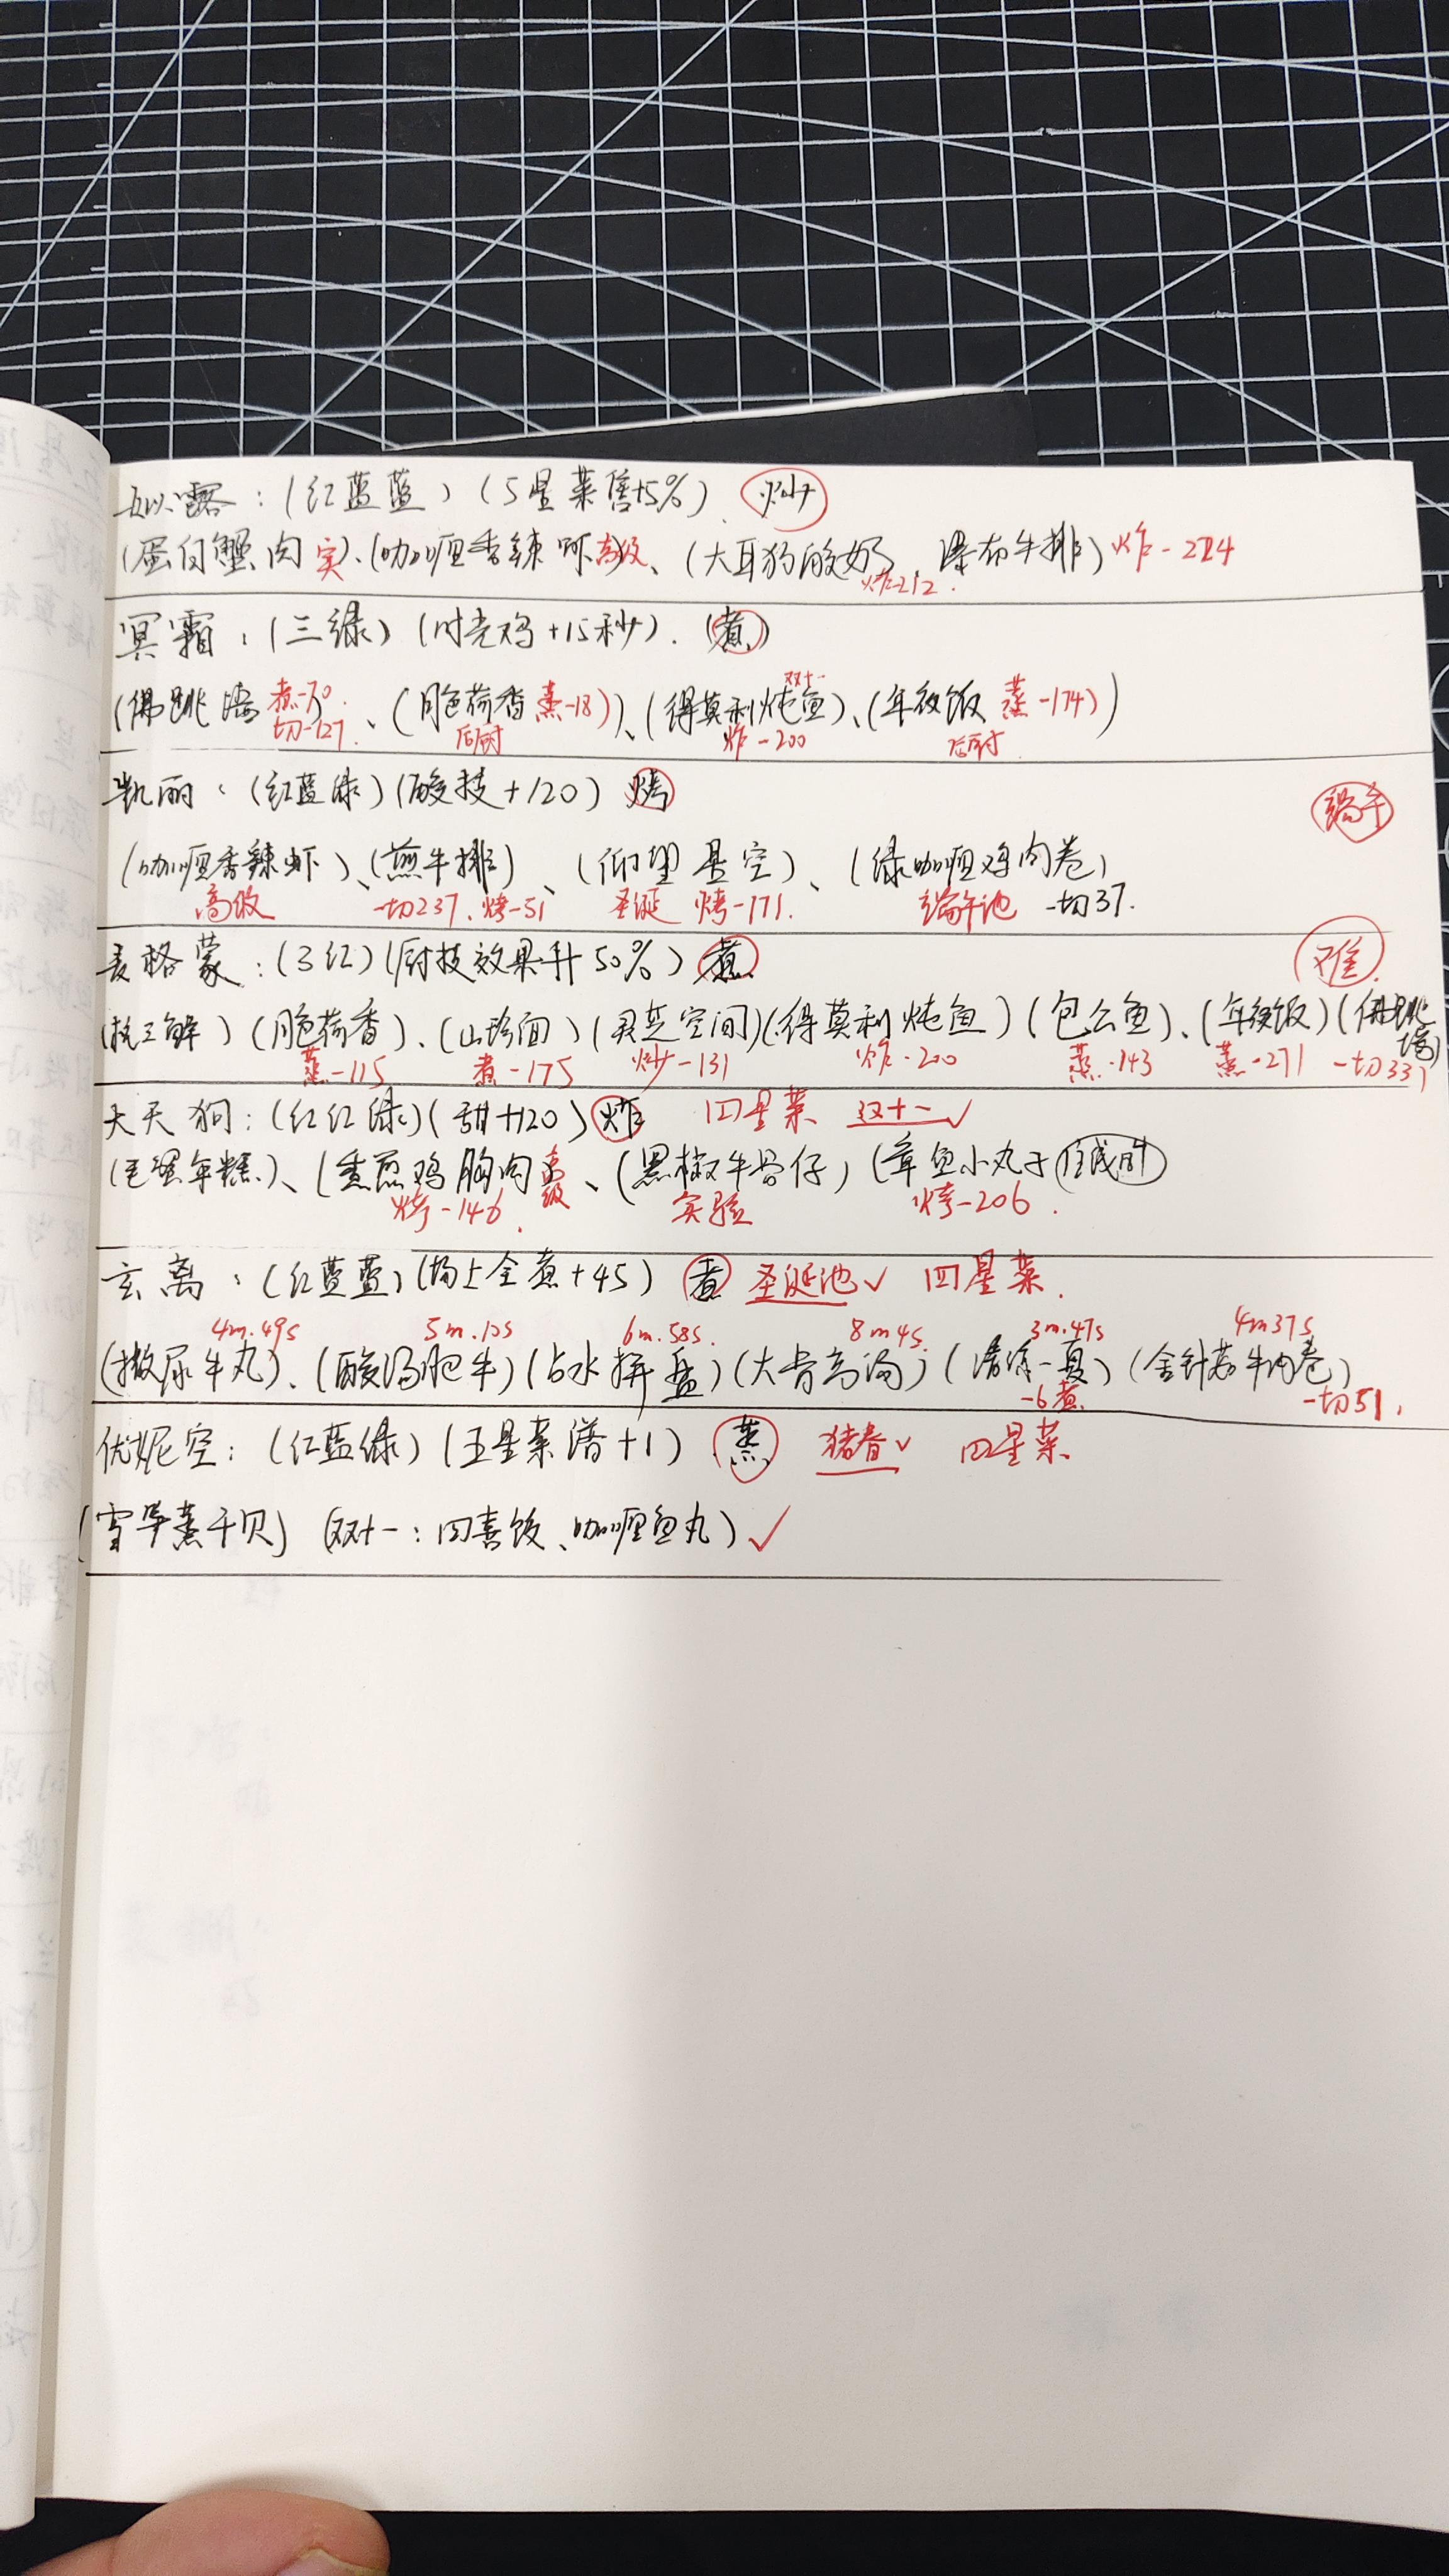 如露：(红蓝蓝)(5星菜售+5%) 炒
(蛋白蟹肉 实)、(咖喱香辣虾 高级)、(大耳狗酸奶、瀑布牛排) 炸-224
炸-212.
冥霜：(三绿)(时壳鸡+15秒). (煮)
双十一
(佛跳墙 煮-70.、(月色荷香 蒸-18))、(得莫利炖鱼)、(年夜饭 蒸-174))
切-127. 后厨 炸-200 后厨
凯丽：(红蓝绿)(酸技+120) 烤 端午
(咖喱香辣虾)、(煎牛排)、(仰望星空)、(绿咖喱鸡肉卷)
高级 -切237. 烤-51 圣诞 烤-171. 端午池 -切37.
麦格蒙：(3红)(厨技效果升50%) 煮 难.
(桃三鲜)(月色荷香)、(山珍面)(灵芝空间)(得莫利炖鱼)(包公鱼)、(年夜饭)(佛跳墙)
蒸-115 煮-175 炒-131 炸-200 蒸-143 蒸-271 -切331
大天狗：(红红绿)(甜+120) 炸 四星菜 双十一✓
(毛蟹年糕)、(香煎鸡胸肉 高级、(黑椒牛骨仔)(章鱼小丸子
烤-146. 实验 烤-206.
玄离：(红蓝蓝)(场上全煮+45) 煮 圣诞池✓ 四星菜.
4m.49s 5m.12s 6m.58s. 8m4s. 3m.47s 4m37s
(撒尿牛丸)、(酸汤肥牛)(卤水拼盘)(大骨高汤)(清凉一夏)(金针菇牛肉卷)
-6煮. -切51.
优妮空：(红蓝绿)(五星菜谱+1) 蒸 猪春✓ 四星菜.
(雪华蒸干贝) (双十一：四喜饺、咖喱鱼丸)✓